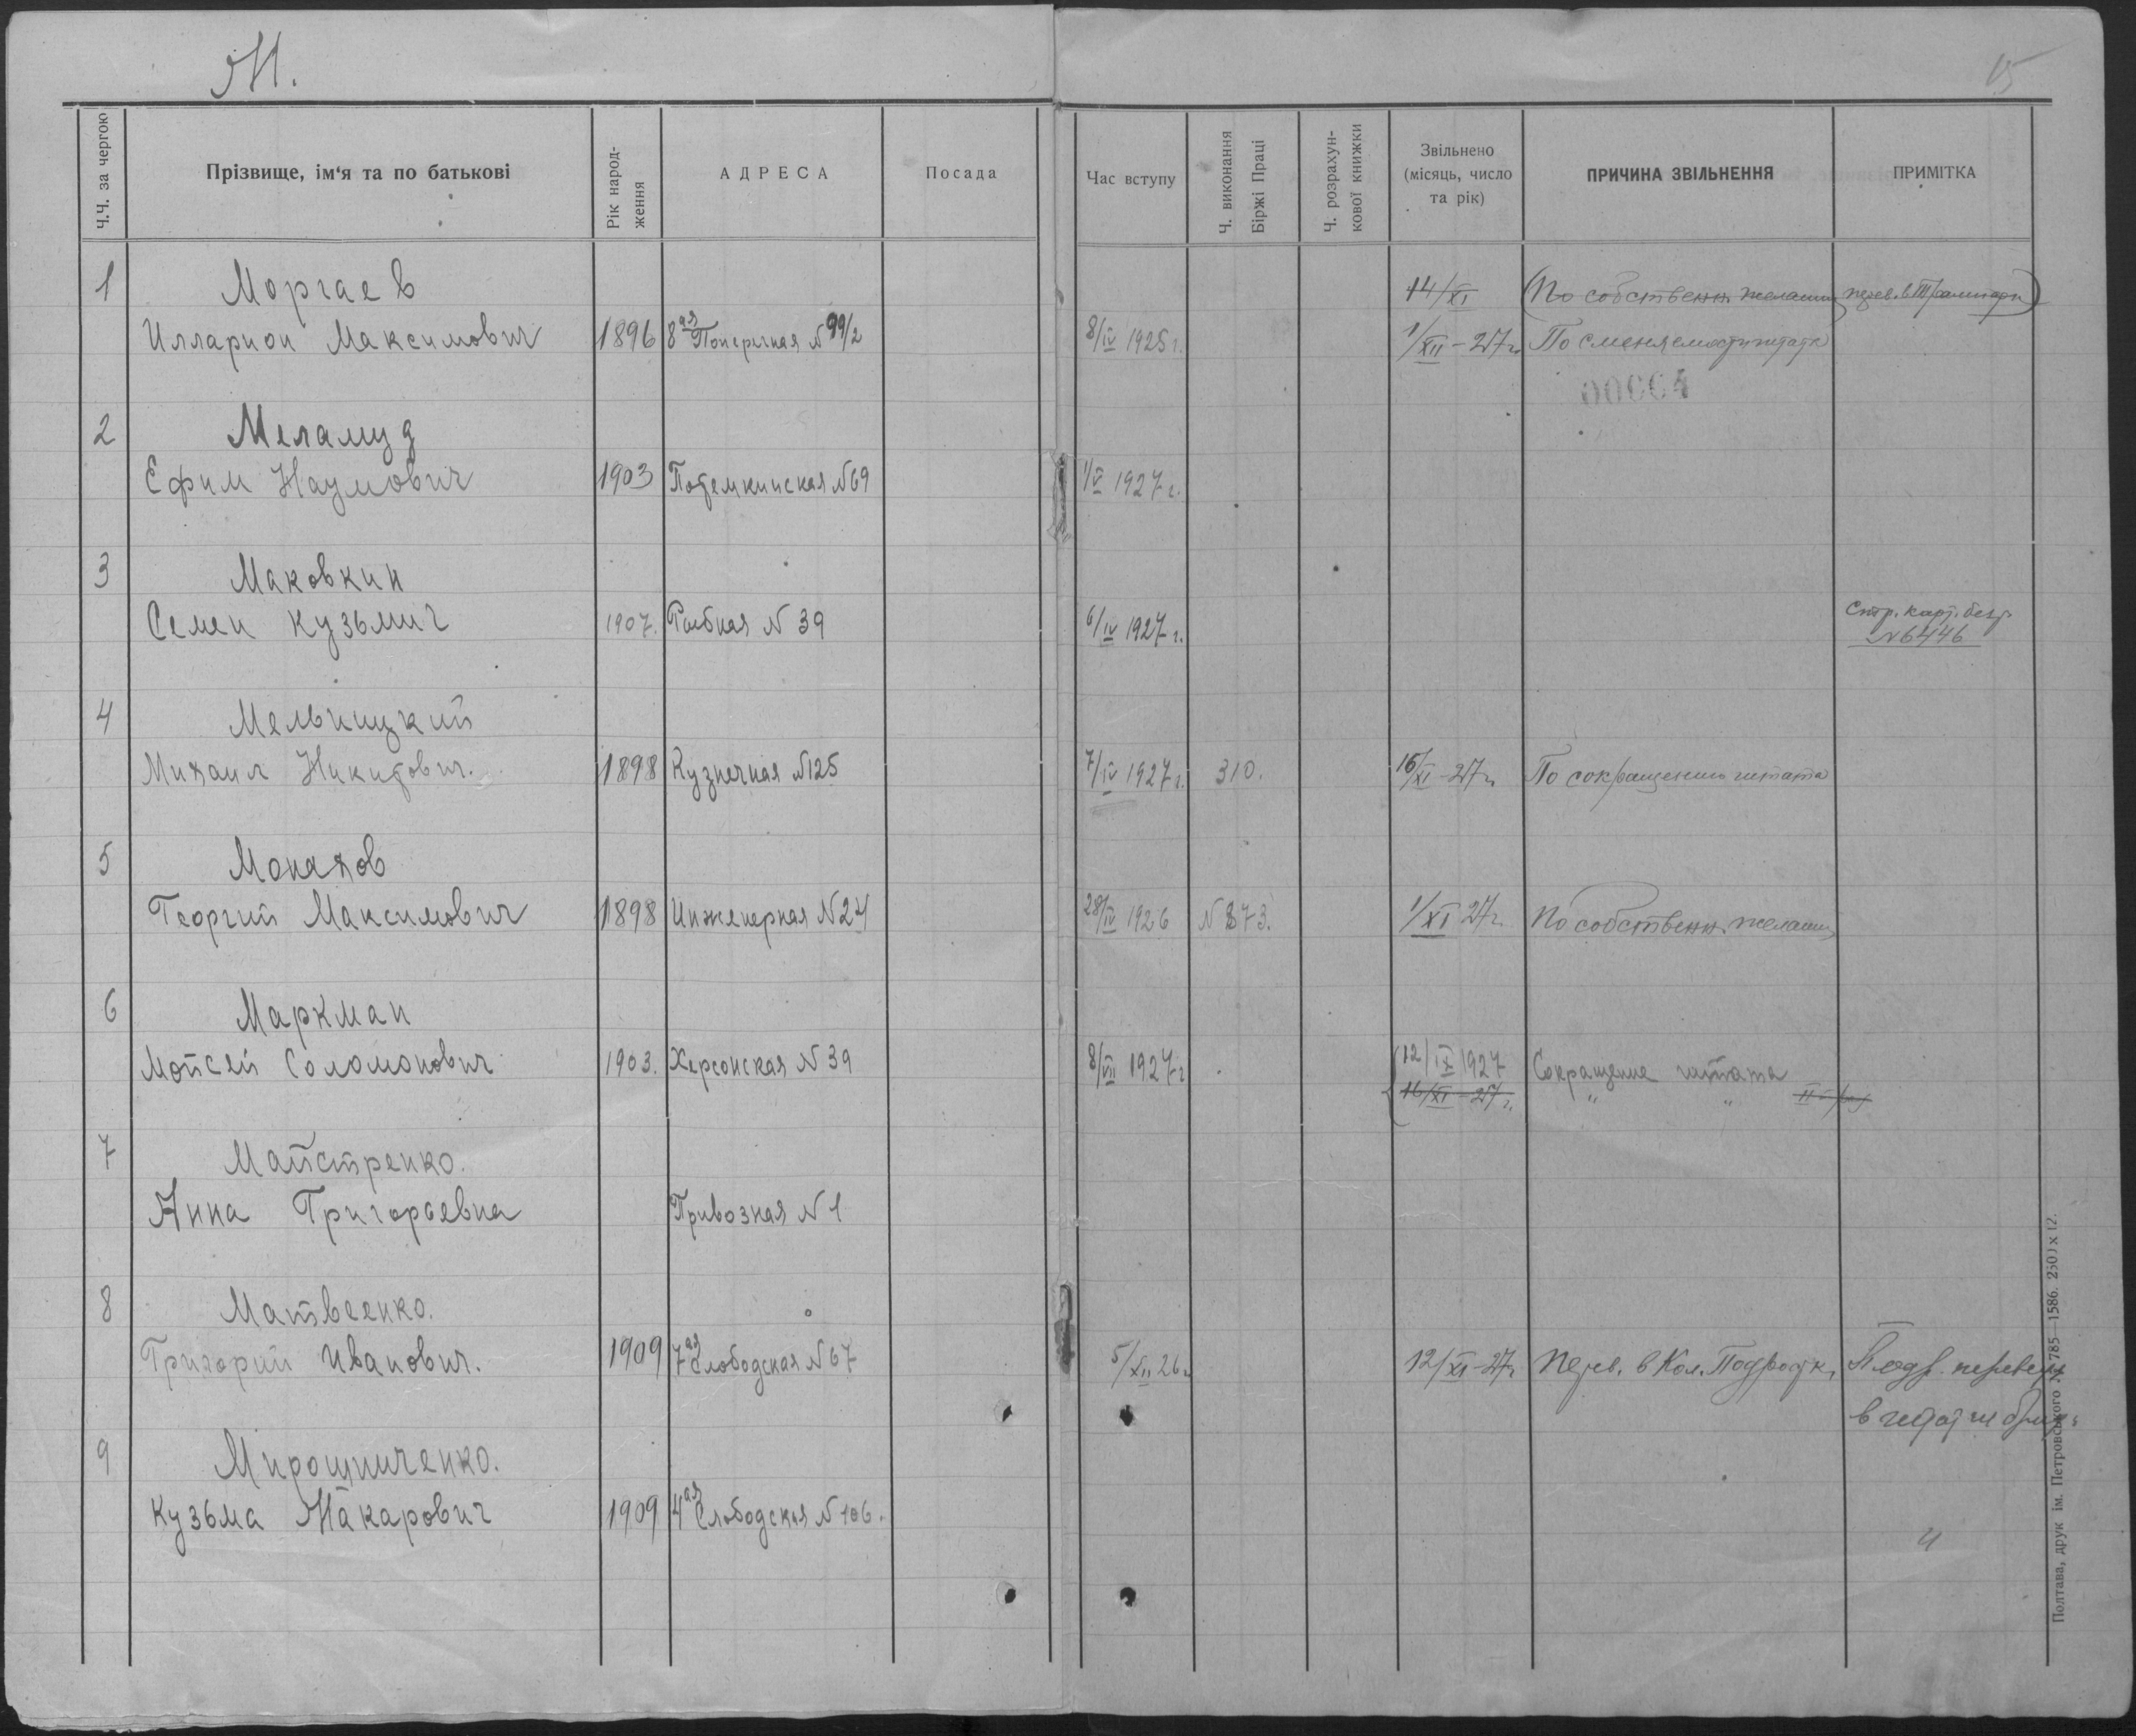 М.
15
Ч.Ч. за чергою
Прізвище, ім'я та по батькові
Рік народ-
ження
АДРЕСА
Посада
Час вступу
Ч. виконання
Біржі Праці
Ч. розрахун-
кової книжки
Звільнено
(місяць, число
та рік)
ПРИЧИНА ЗВІЛЬНЕННЯ
ПРИМІТКА
1 Моргаев 14/XI (По собственн. желанию перев. в
Илларион Максимович 1896 8ая Поперечная N 99/2 8/IV 1925 г. 1/XII-27 г. По
00004
2 Меламуд
Ефим Наумович 1903 Потемкинская N 69 1/V 1927 г.
3 Маковкин
Семен Кузьмич 1907. Рыбная N 39 6/IV 1927 г. Стр. карт. безр.
N 6446
4 Мельницкий
Михаил Никитович. 1898 Кузнечная N 125 7/IV 1927 г. 310. 16/XI-27 г. По сокращению штата
5 Монахов
Георгий Максимович 1898 Инженерная N 24 28/IV 1926 N 873. 1/XI 27 г. По собственн. желанию
6 Маркман
Мойсей Соломонович 1903. Херсонская N 39 8/VII 1927 г. 12/IX 1927 Сокращение штата
16/XI-27 г. " "
7 Майстренко.
Анна Григорьевна Привозная N 1
8 Матвеенко.
Григорий Иванович. 1909 7ая Слободская N 67 5/XII 26 г. 12/XI-27 г. Перев. в Кол. Подростк. Подр. перевед.
в штат
9 Мирошниченко.
Кузьма Макарович 1909 4ая Слободская N 106. "
Полтава, друк ім. Петровського № 785—1586. 2500 х 12.